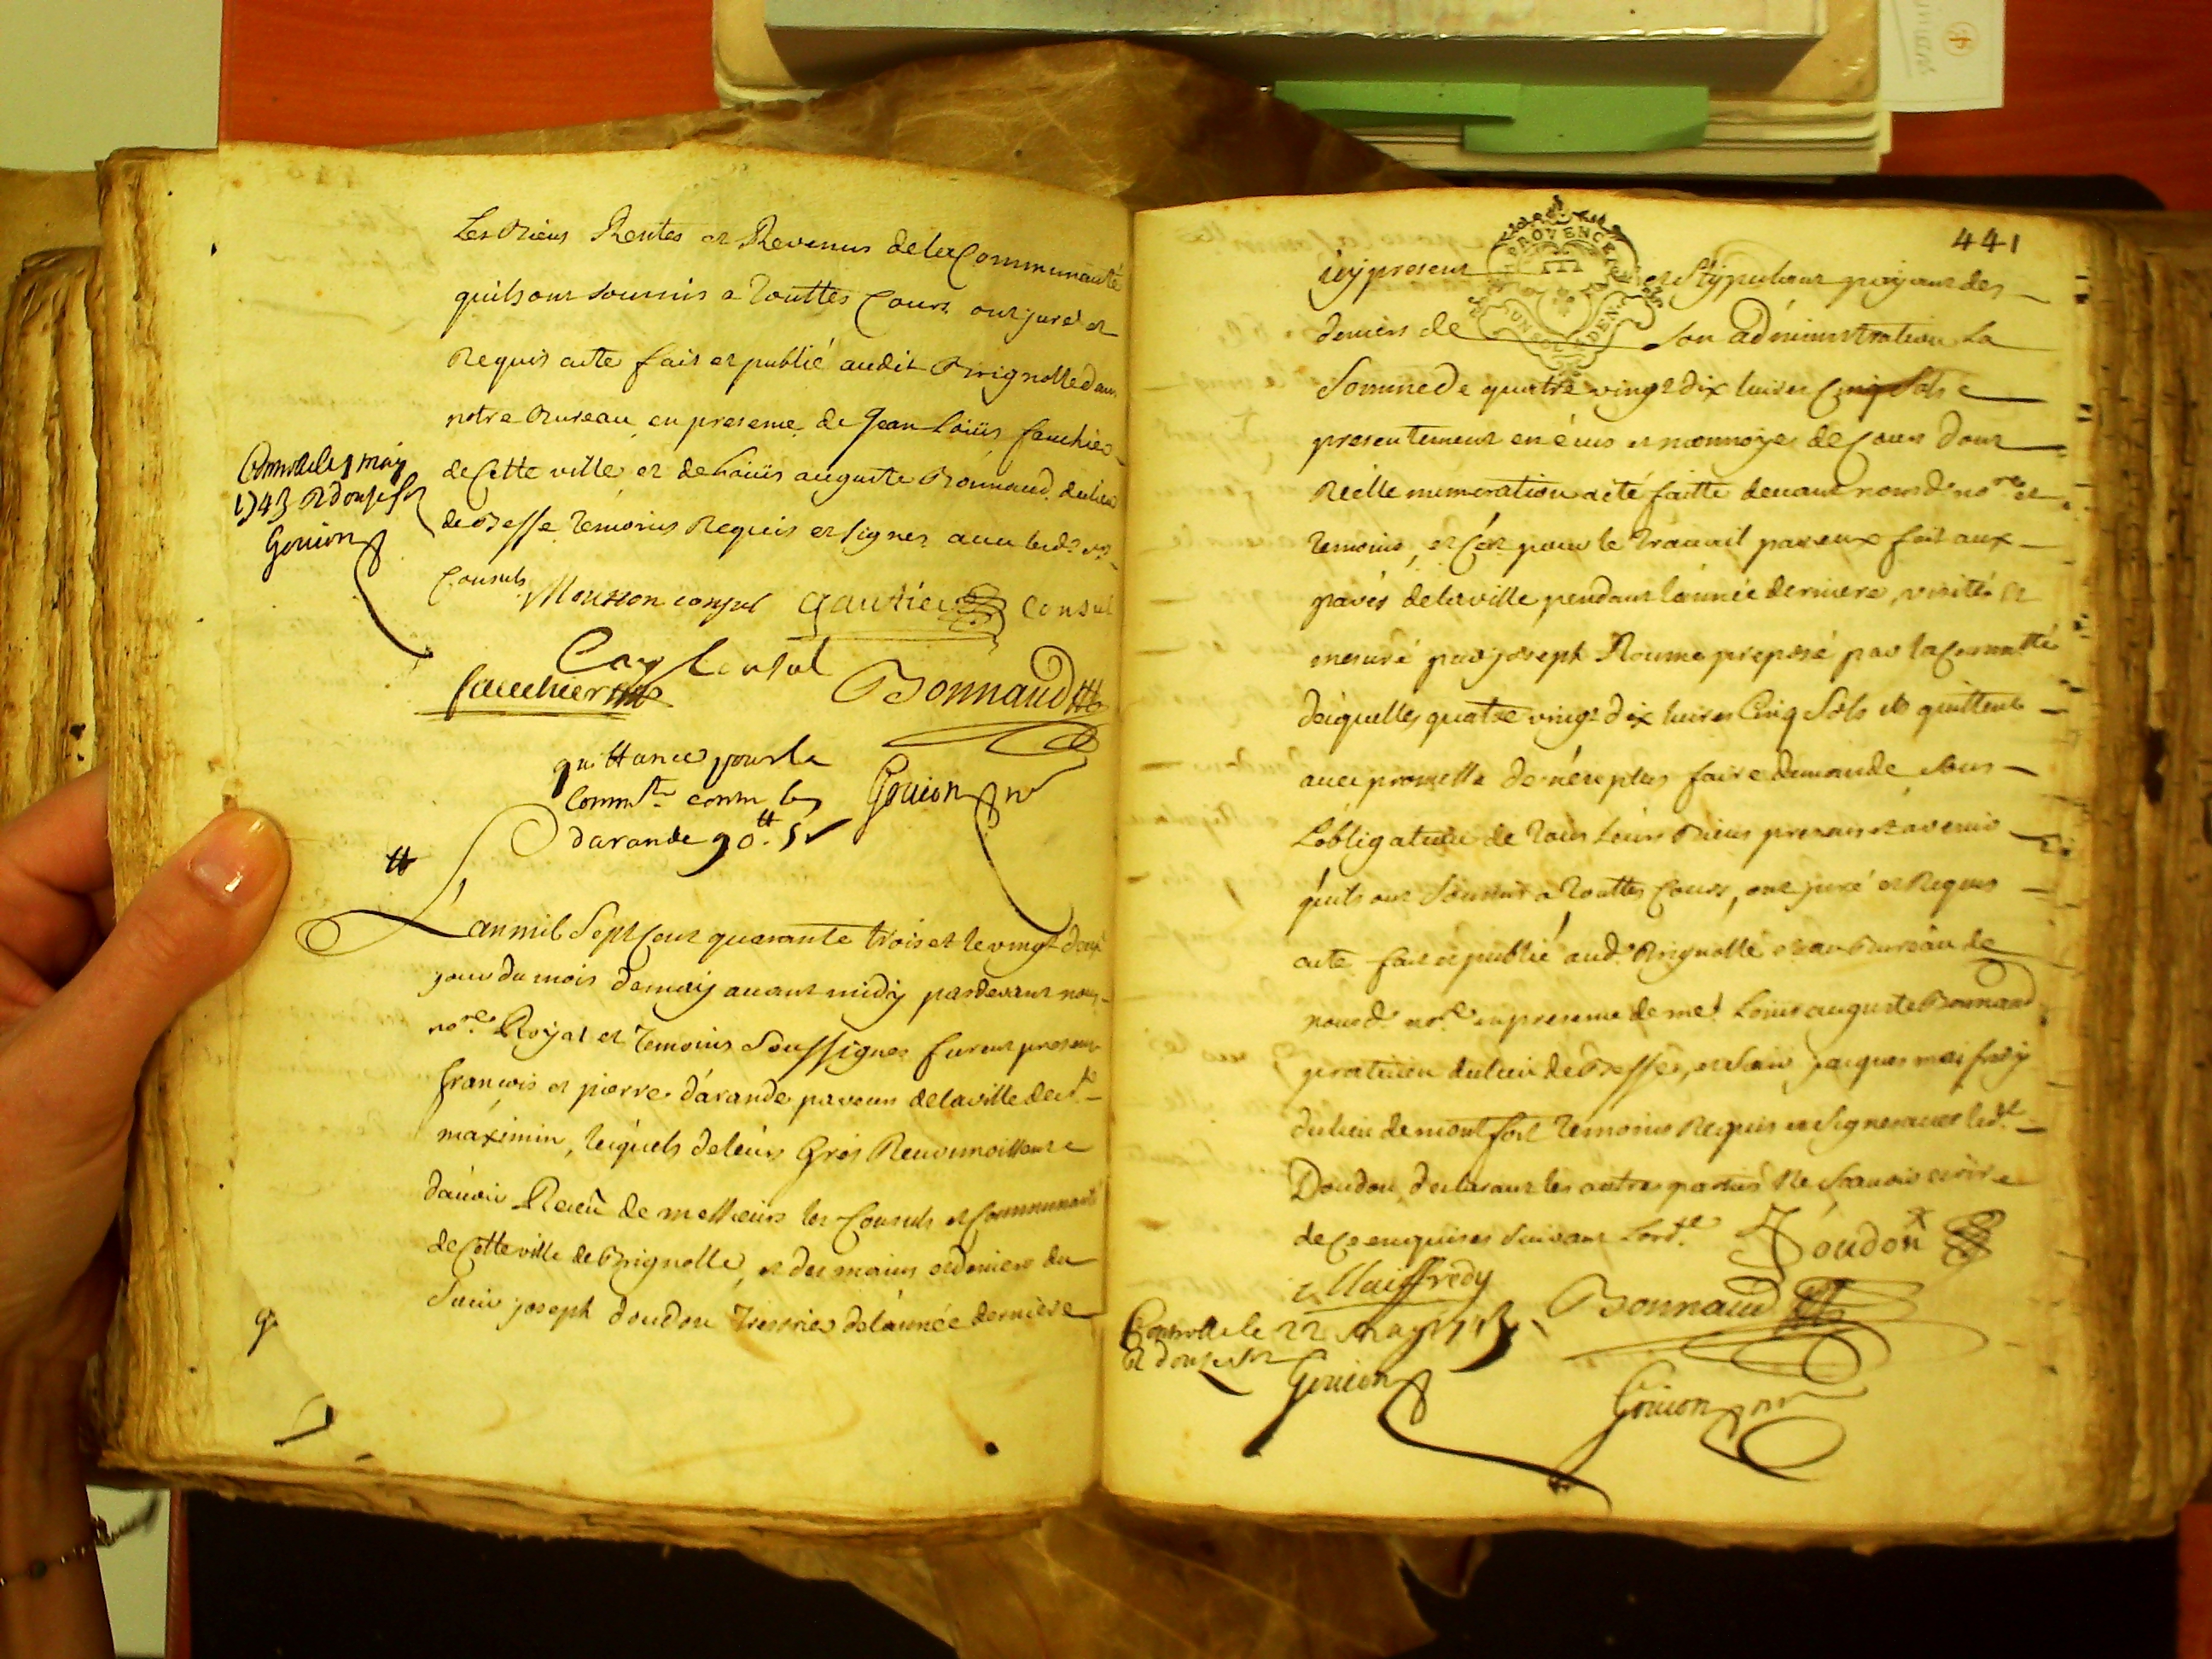 Les Biens Rentes et Revenus de la Communauté
quils ont soumis a Touttes Cours ont juré et
Requis acte fait et publié audit Brignolle dans
notre Bureau en presence de Jean Loüis fauchier
de Cette ville et de Loüis auguste Bonnaud du lieu
de Besse temoins Requis et signes avec lesds. srs.
Consuls
Controllé le may
1743 R douze s
Gouion
Mousson consul gautier Consul
Cay Consul
fauchier Bonnaud
quittance pour la
Commté. contre les
darande 90.tt 5s
Gouion nre
Lan mil Sept Cent quarante trois et le vingt deux
jour du mois de may avant midy pardevant nous
nore. Royal et temoins Soussignes furent presens
françois et pierre darande paveurs de la ville de st.
maximin, lesquels de leurs Gres Reconnoissent
davoir Reçeu de messieurs les Consuls et Communauté
de Cette ville de Brignolle, et des mains et deniers du
Sieur joseph doudon Tresorier de lannée derniere
PROVENCE
UN SOL 4 DEN
441
icy present et stipulant payant des
deniers de son administration La
Somme de quatre vingt dix livres Cinq Sols
presentement en écus et monnoye de Cours dont
Réelle numeration a eté faitte devant nousd. nore. et
temoins, et C'est pour le travail par eux fait aux
pavés de la ville pendant lannée derniere, visité et
mesuré par joseph Roume preposé par la Commtté
desquelles quatre vingt dix livres Cinq Sols ils quittent
avec promesse de n'en plus faire demande sous
Lobligation de tous leurs Biens presens et avenir
quils ont soumis a Touttes Cours, ont juré et Requis
acte fait et publié aud. Brignolle et au Bureau de
nousd. nore. en presence de me. Loüis auguste Bonnaud
praticien du lieu de Besse, et sieur jacques maifredy
du lieu de montfort temoins Requis et Signes avec led.
Doudon, declarant les autres parties Ne Scavoir ecrire
de Ce enquises suivant Lorde. Doudon
Maiffredy
Bonnaud
Controllé le 22 may 1743
R douze sols
Gouion
Gouion nre